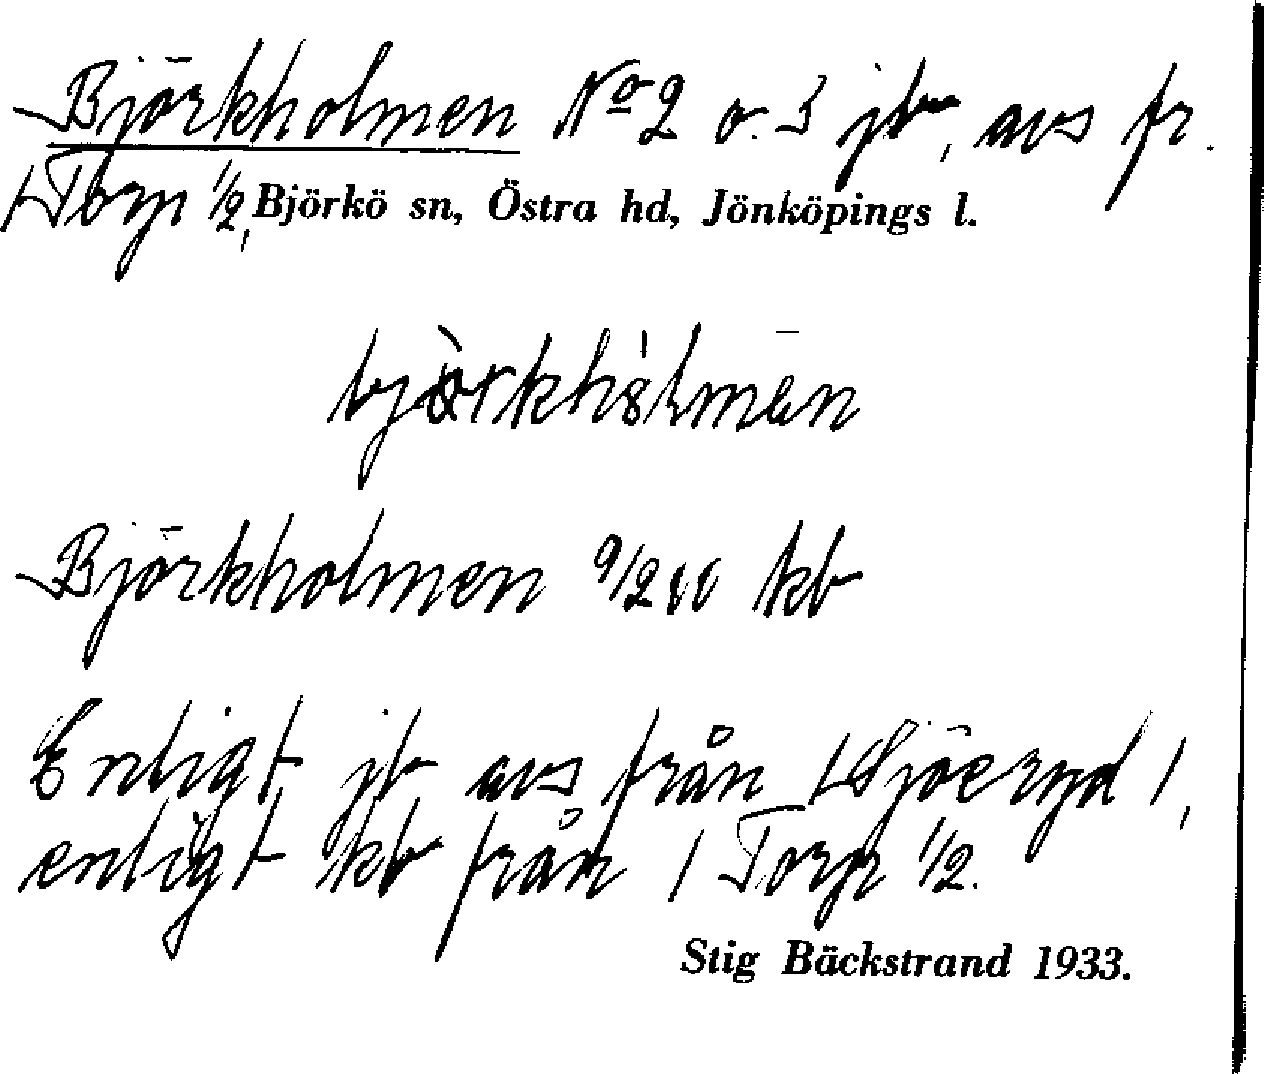 Björkholmen No 2 o. 3 jb, avs fr.
1 Torp 1/2, Björkö sn, Östra hd, Jönköpings l.
Björkholmen 9/2 kb
Enligt jb avs från 1 Sjöeryd 1,
enligt kb från 1 Torp 1/2.
Stig Bäckstrand 1933.